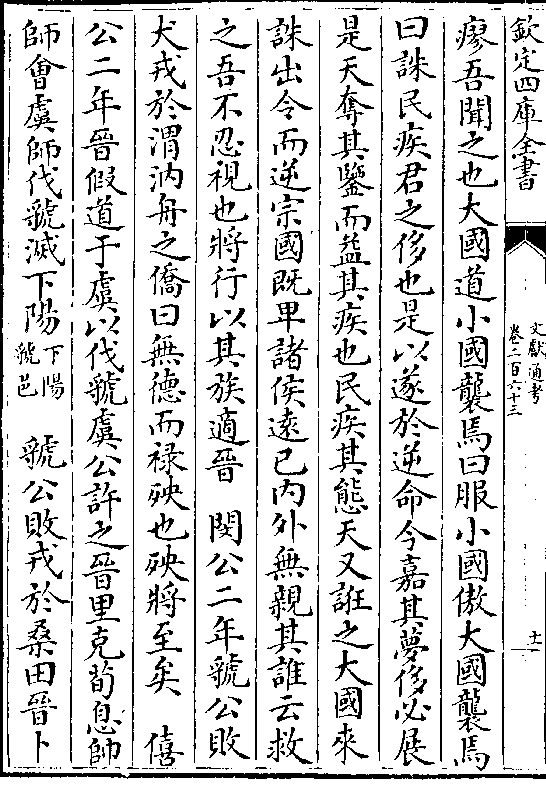 欽定四庫全書
文獻通考
卷二百六十三
十一
瘳吾聞之也大國道小國襲焉曰服小國傲大國襲焉
曰誅民疾君之侈也是以遂於逆命今嘉其夢侈必展
是天奪其鑒而益其疾也民疾其態天又誑之大國來
誅出令而逆宗國既卑諸侯遠已内外無親其誰云救
之吾不忍視也將行以其族適晉　閔公二年虢公敗
犬戎於渭汭舟之僑曰無德而禄殃也殃將至矣　僖
公二年晉假道于虞以伐虢虞公許之晉里克荀息帥
師會虞師伐虢滅下陽下陽虢邑　虢公敗戎於桑田晉卜